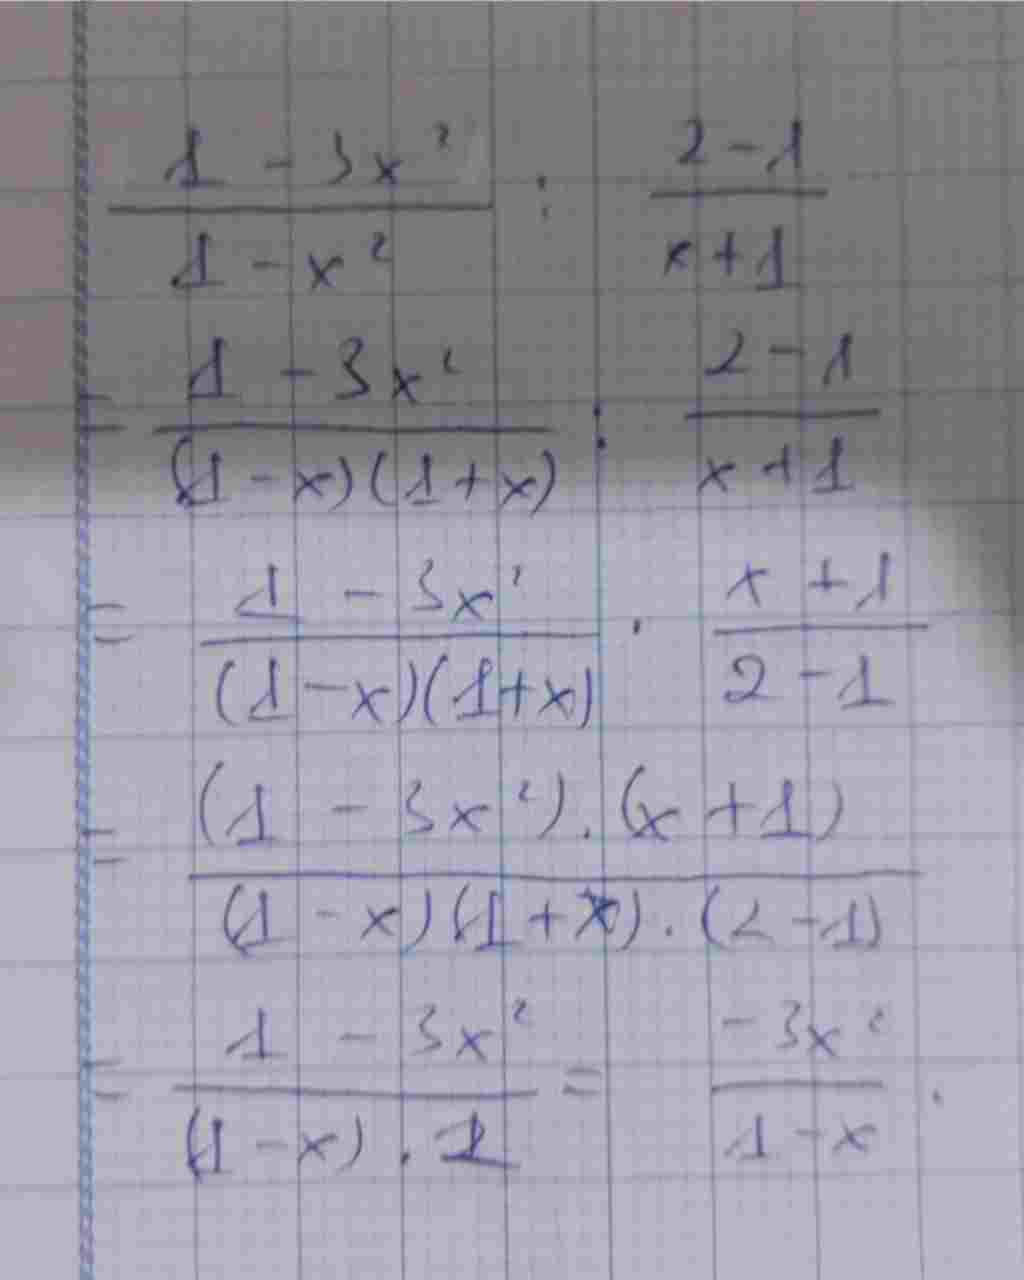 (1 - 3x²)/(1 - x²) : (2 - 1)/(x + 1)
= (1 - 3x²)/((1 - x)(1 + x)) : (2 - 1)/(x + 1)
= (1 - 3x²)/((1 - x)(1 + x)) . (x + 1)/(2 - 1)
= ((1 - 3x²) . (x + 1))/((1 - x)(1 + x) . (2 - 1))
= (1 - 3x²)/((1 - x) . 1) = (-3x²)/(1 - x) .